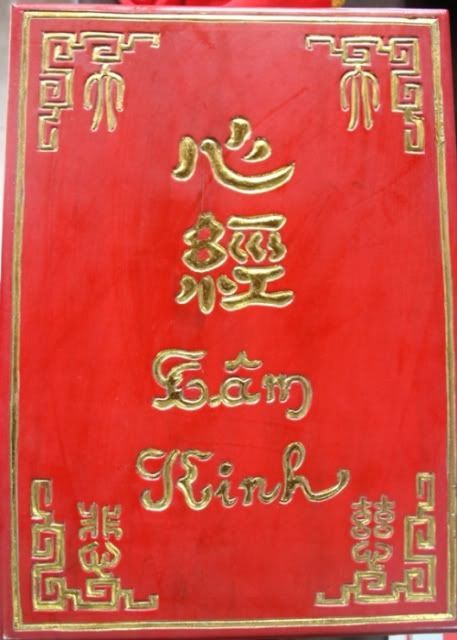 心
經
Tâm
Kinh